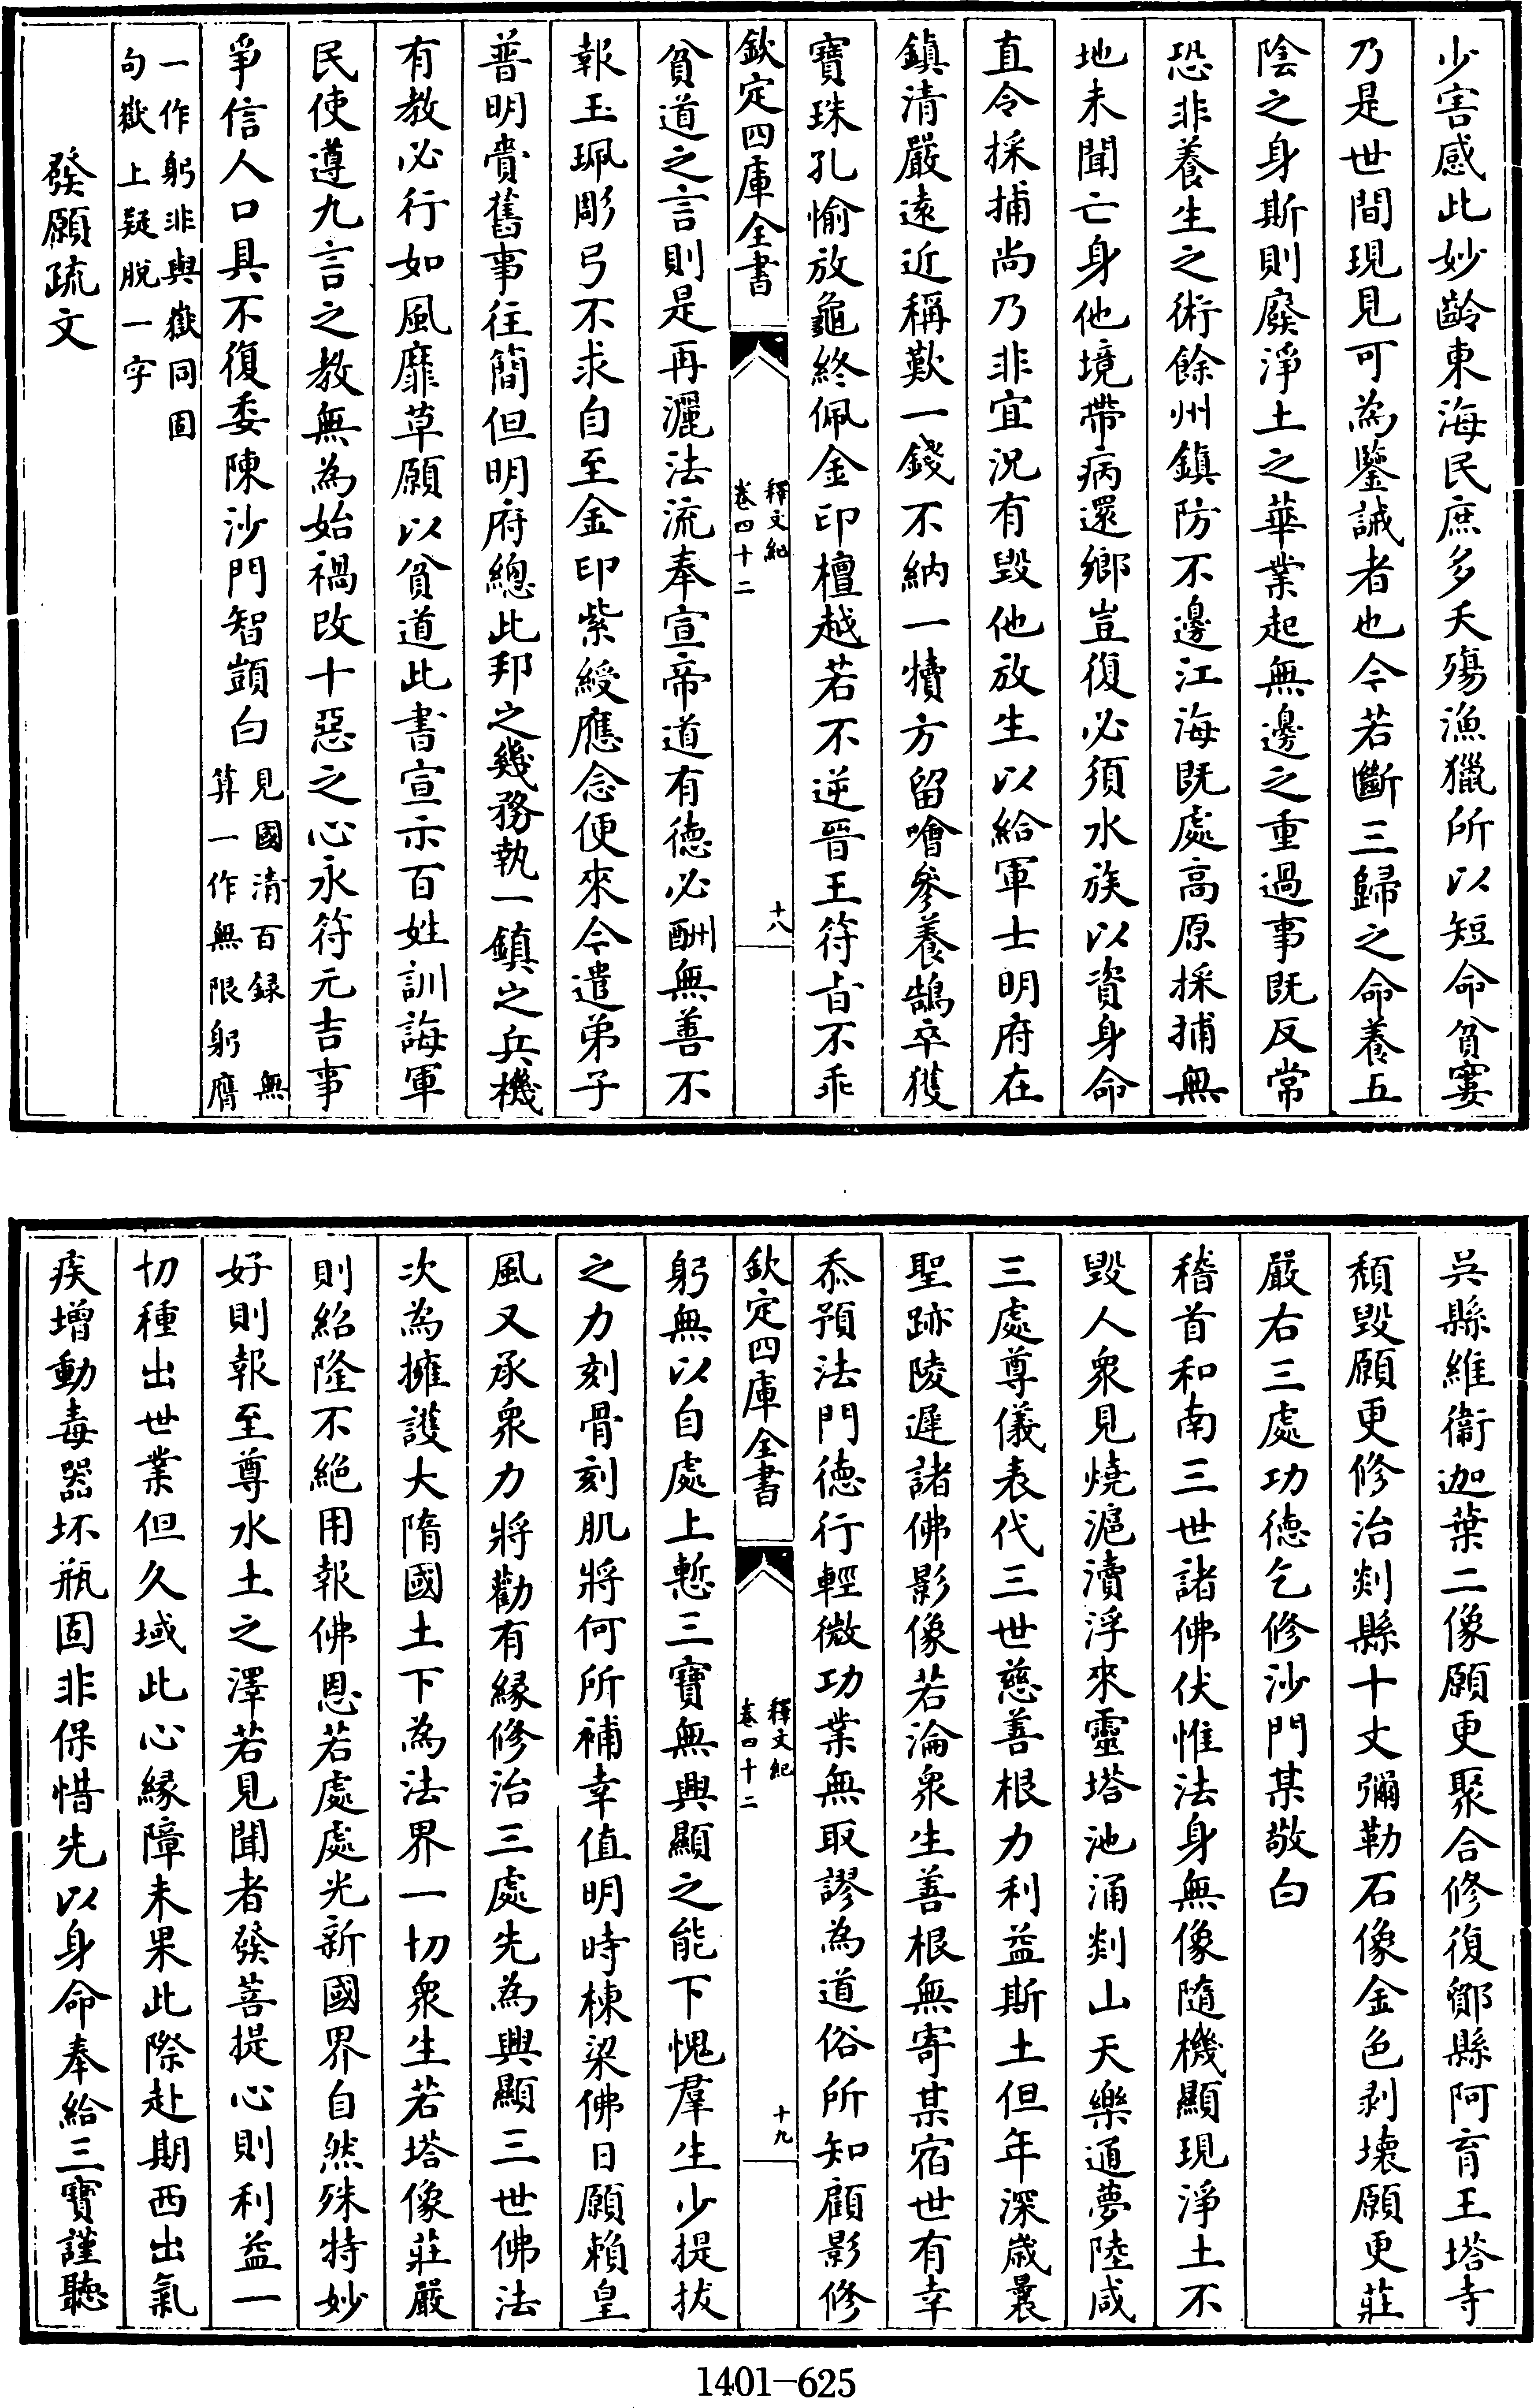 少害感此妙齡東海民庶多夭殤漁獵所以短命貧窶
乃是世間現見可為鑒誡者也今若斷三歸之命養五
陰之身斯則廢淨土之華業起無邊之重過事既反常
恐非養生之術餘州鎮防不邊江海既處高原採捕無
地未聞亡身他境帶病還鄉豈復必須水族以資身命
直令採捕尚乃非宜況有毀他放生以給軍士明府在
鎮清嚴遠近稱歎一錢不納一犢方留噲參養鵠卒獲
寶珠孔愉放龜終佩金印檀越若不逆晉王符旨不乖
欽定四庫全書
釋文紀
卷四十二
十八
貧道之言則是再灑法流奉宣帝道有德必酬無善不
報玉珮彫弓不求自至金印紫綬應念便來今遣弟子
普明賫舊事往簡但明府總此邦之幾務執一鎮之兵機
有教必行如風靡草願以貧道此書宣示百姓訓誨軍
民使遵九言之教無為始禍改十惡之心永符元吉事
爭信人口具不復委陳沙門智顗白
見國清百録　無
算一作無限躬膺
一作躬非與嶽同固
句嶽上疑脫一字
發願疏文
吳縣維衞迦葉二像願更聚合修復鄮縣阿育王塔寺
頹毀願更修治剡縣十丈彌勒石像金色剥壞願更莊
嚴右三處功德乞修沙門某敬白
稽首和南三世諸佛伏惟法身無像隨機顯現淨土不
毀人衆見燒滬瀆浮來靈塔池涌剡山天樂通夢陸咸
三處尊儀表代三世慈善根力利益斯土但年深歲曩
聖跡陵遲諸佛影像若淪衆生善根無寄某宿世有幸
忝預法門德行輕微功業無取謬為道俗所知顧影修
欽定四庫全書
釋文紀
卷四十二
十九
躬無以自處上慙三寶無興顯之能下愧羣生少提拔
之力刻骨刻肌將何所補幸值明時棟梁佛日願賴皇
風又承衆力將勸有緣修治三處先為興顯三世佛法
次為擁護大隋國土下為法界一切衆生若塔像莊嚴
則紹隆不絕用報佛恩若處處光新國界自然殊特妙
好則報至尊水土之澤若見聞者發菩提心則利益一
切種出世業但久域此心緣障未果此際赴期西出氣
疾增動毒器坏瓶固非保惜先以身命奉給三寶謹聽
1401—625